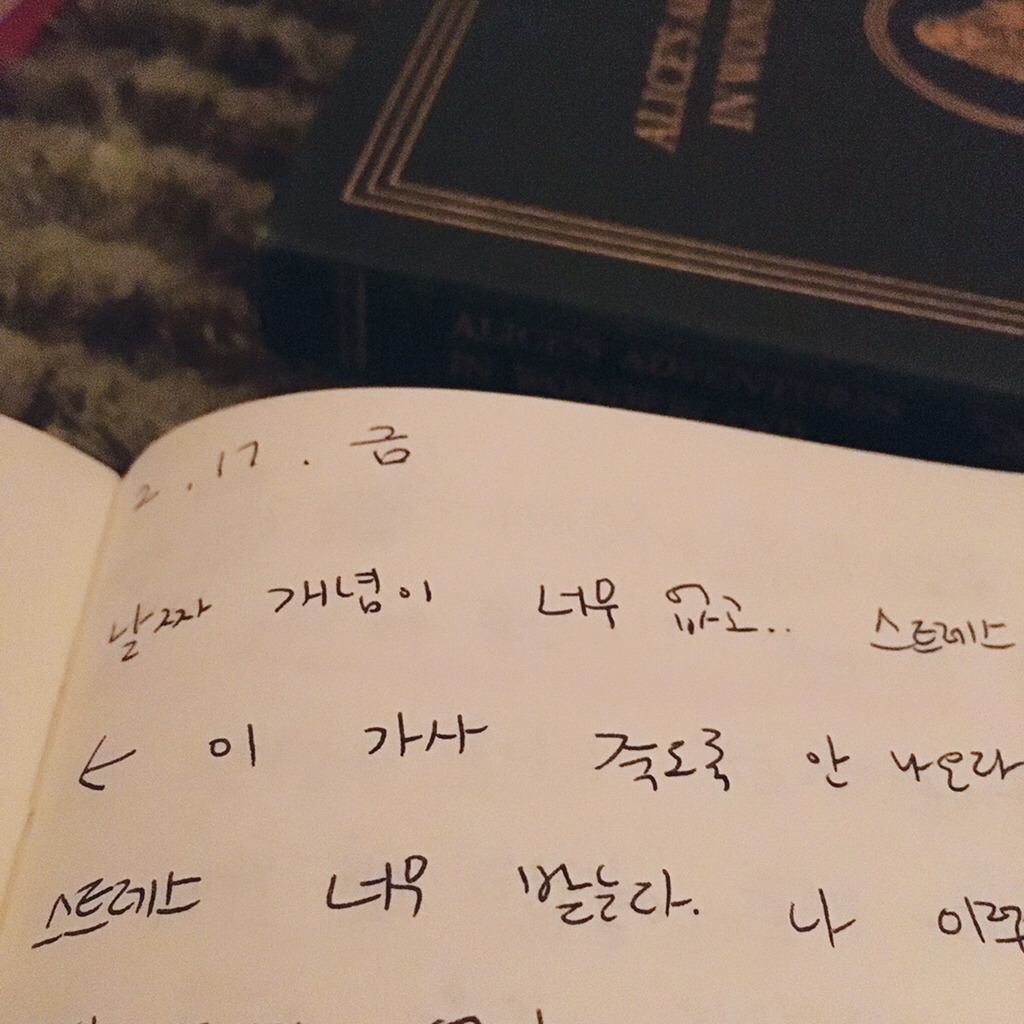 ALICE'S
IN
2.17.금
날짜 개념이 너무 없고.. 스트레스
← 이 가사 죽도록 안 나오라
스트레스 너무 받는다. 나